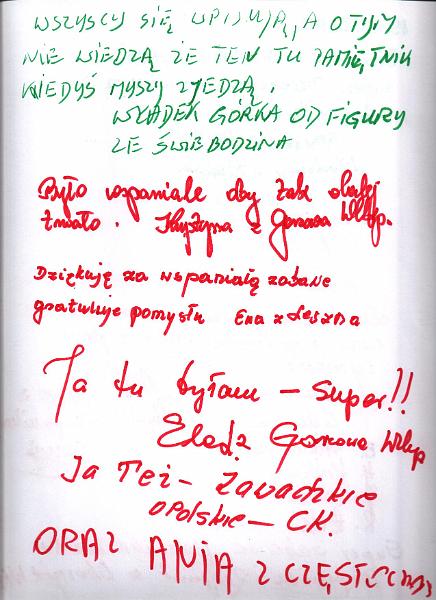 WSZYSCY SIĘ WPISUJĄ, A O TYM
NIE WIEDZĄ ŻE TEN TU PAMIĘTNIK
KIEDYŚ MYSZY ZJEDZĄ.
WŁADEK GÓRKA OD FIGURY
ZE ŚWIEBODZINA
Było wspaniale oby tak dalej
trwało. Krystyna z Gorzowa Wlkp.
Dziękuję za wspaniałą zabawę
gratuluję pomysłu Ewa z Leszna
Ja tu byłam - super!!
Gorzów Wlkp
Ja Też - Zawadzkie
opolskie - CK.
ORAZ ANIA Z CZĘSTOCHOWY